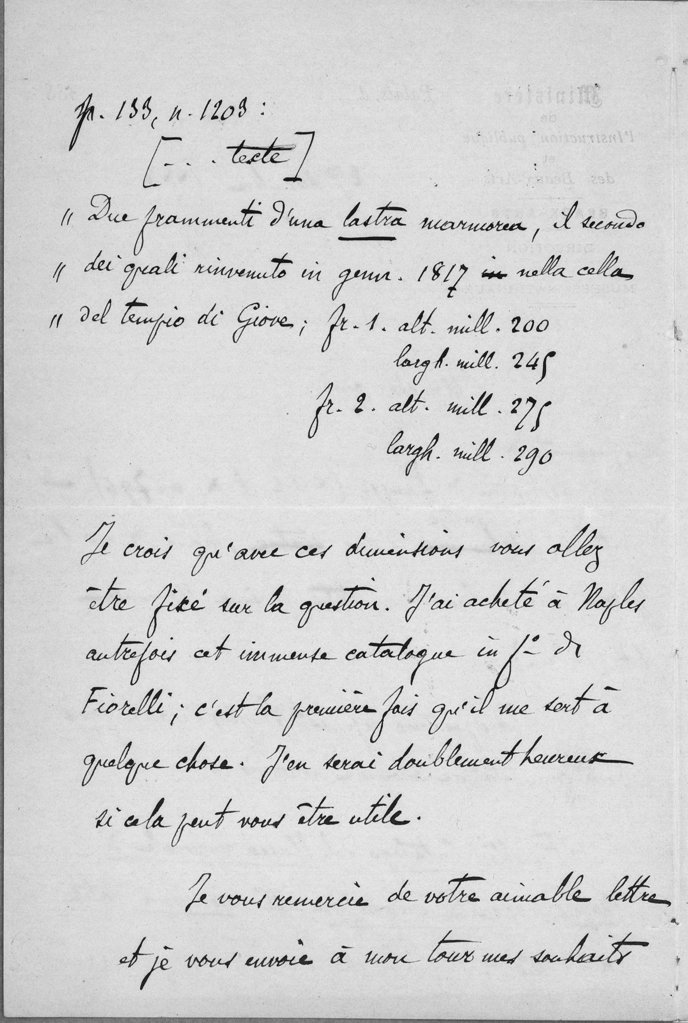 p. 133, n. 1203 :
[ . . . texte ]
" Due frammenti d'una lastra marmorea, il secondo
" dei quali rinvenuto in genn. 1817 in nella cella
" del tempio di Giove ; fr. 1. alt. mill. 200
largh. mill. 245
fr. 2. alt. mill. 275
largh. mill. 290
Je crois qu'avec ces dimensions vous allez
être fixé sur la question. J'ai acheté à Naples
autrefois cet immense catalogue in f° de
Fiorelli ; c'est la première fois qu'il me sert à
quelque chose. J'en serai doublement heureux
si cela peut vous être utile.
Je vous remercie de votre aimable lettre
et je vous envoie à mon tour mes souhaits